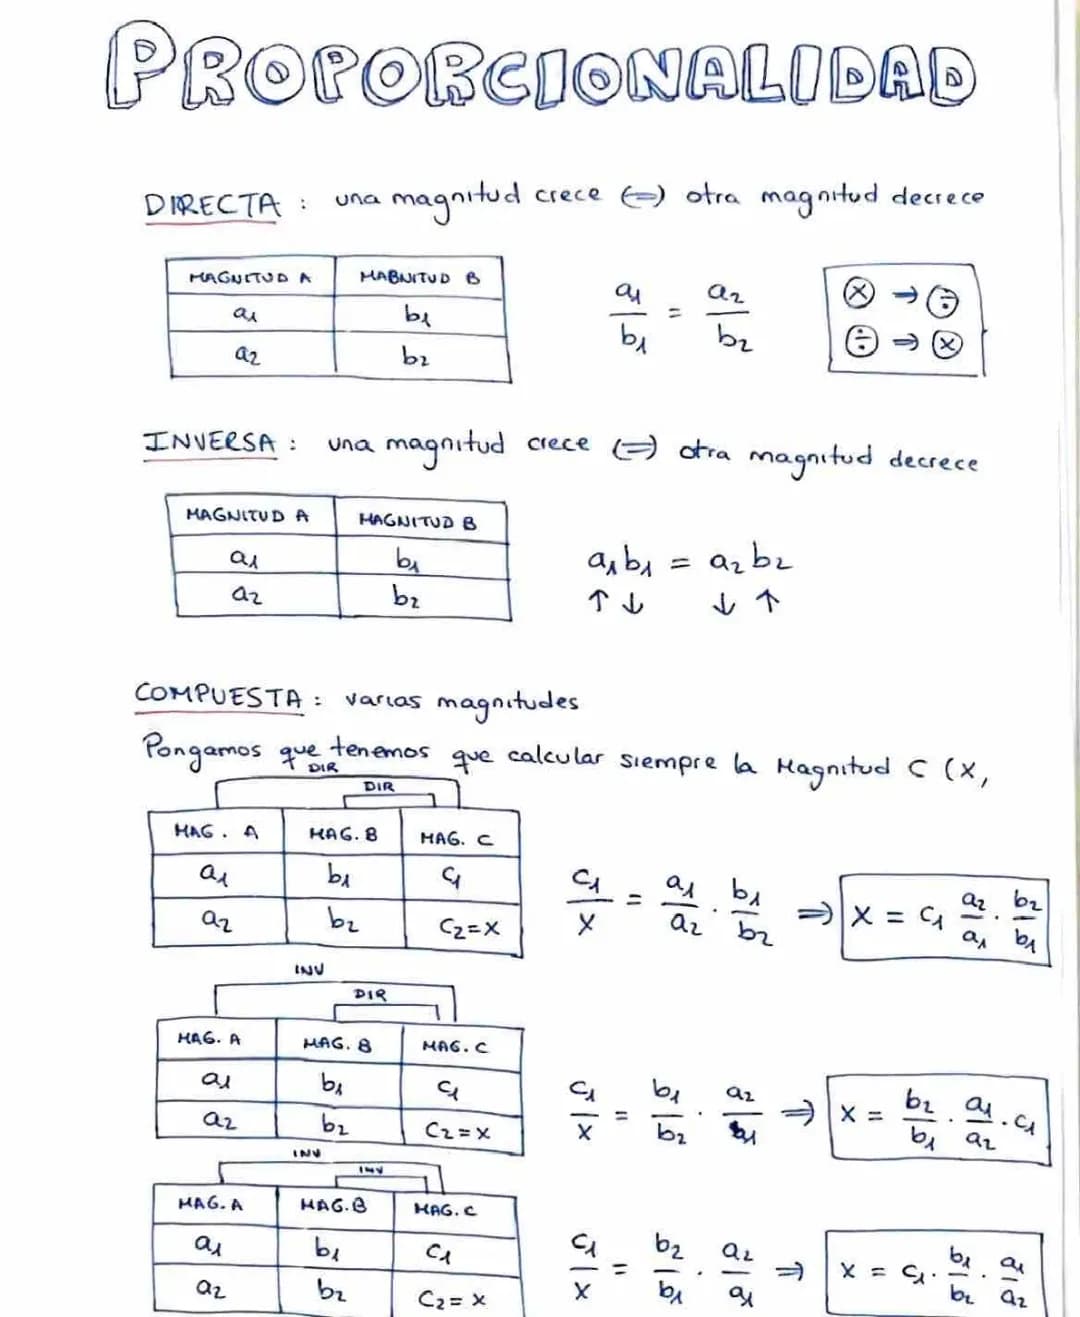 PROPORCIONALIDAD
DIRECTA : una magnitud crece (=) otra magnitud decrece
MAGNITUD A MABNITUD B
a1 b1
a2 b2
a1/b1 = a2/b2
ⓧ → ➗
➗ ⇒ ⓧ
INVERSA : una magnitud crece (=) otra magnitud decrece
MAGNITUD A MAGNITUD B
a1 b1
a2 b2
a1b1 = a2b2
↑ ↓ ↓ ↑
COMPUESTA : varias magnitudes
Pongamos que tenemos que calcular siempre la Magnitud C (x,
DIR
DIR
MAG. A MAG. B MAG. C
a1 b1 c1
a2 b2 C2=X
c1/x = a1/a2 · b1/b2 ⇒ x = c1 a2/a1 · b2/b1
INV
DIR
MAG. A MAG. B MAG. C
a1 b1 c1
a2 b2 C2=X
c1/x = b1/b2 · a2/a1 ⇒ x = b2/b1 · a1/a2 · c1
INV
INV
MAG. A MAG. B MAG. C
a1 b1 c1
a2 b2 C2=X
c1/x = b2/b1 · a2/a1 ⇒ x = c1 · b1/b2 · a1/a2